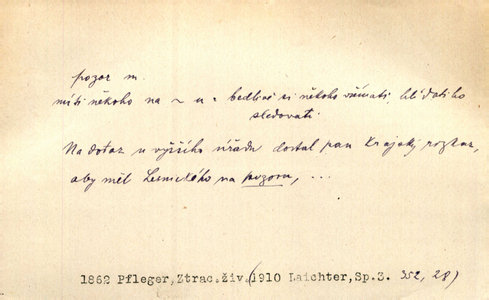 pozor m.
míti někoho na ~ u = bedlivě si někoho všímati, hlídati ho
sledovati
Na dotaz u vyššího úřadu dostal pan Krajský rozkaz,
aby měl Lesnického na pozoru, ...
1862 Pfleger, Ztrac. živ. (1910 Laichter, Sp. 3. 352, 28)